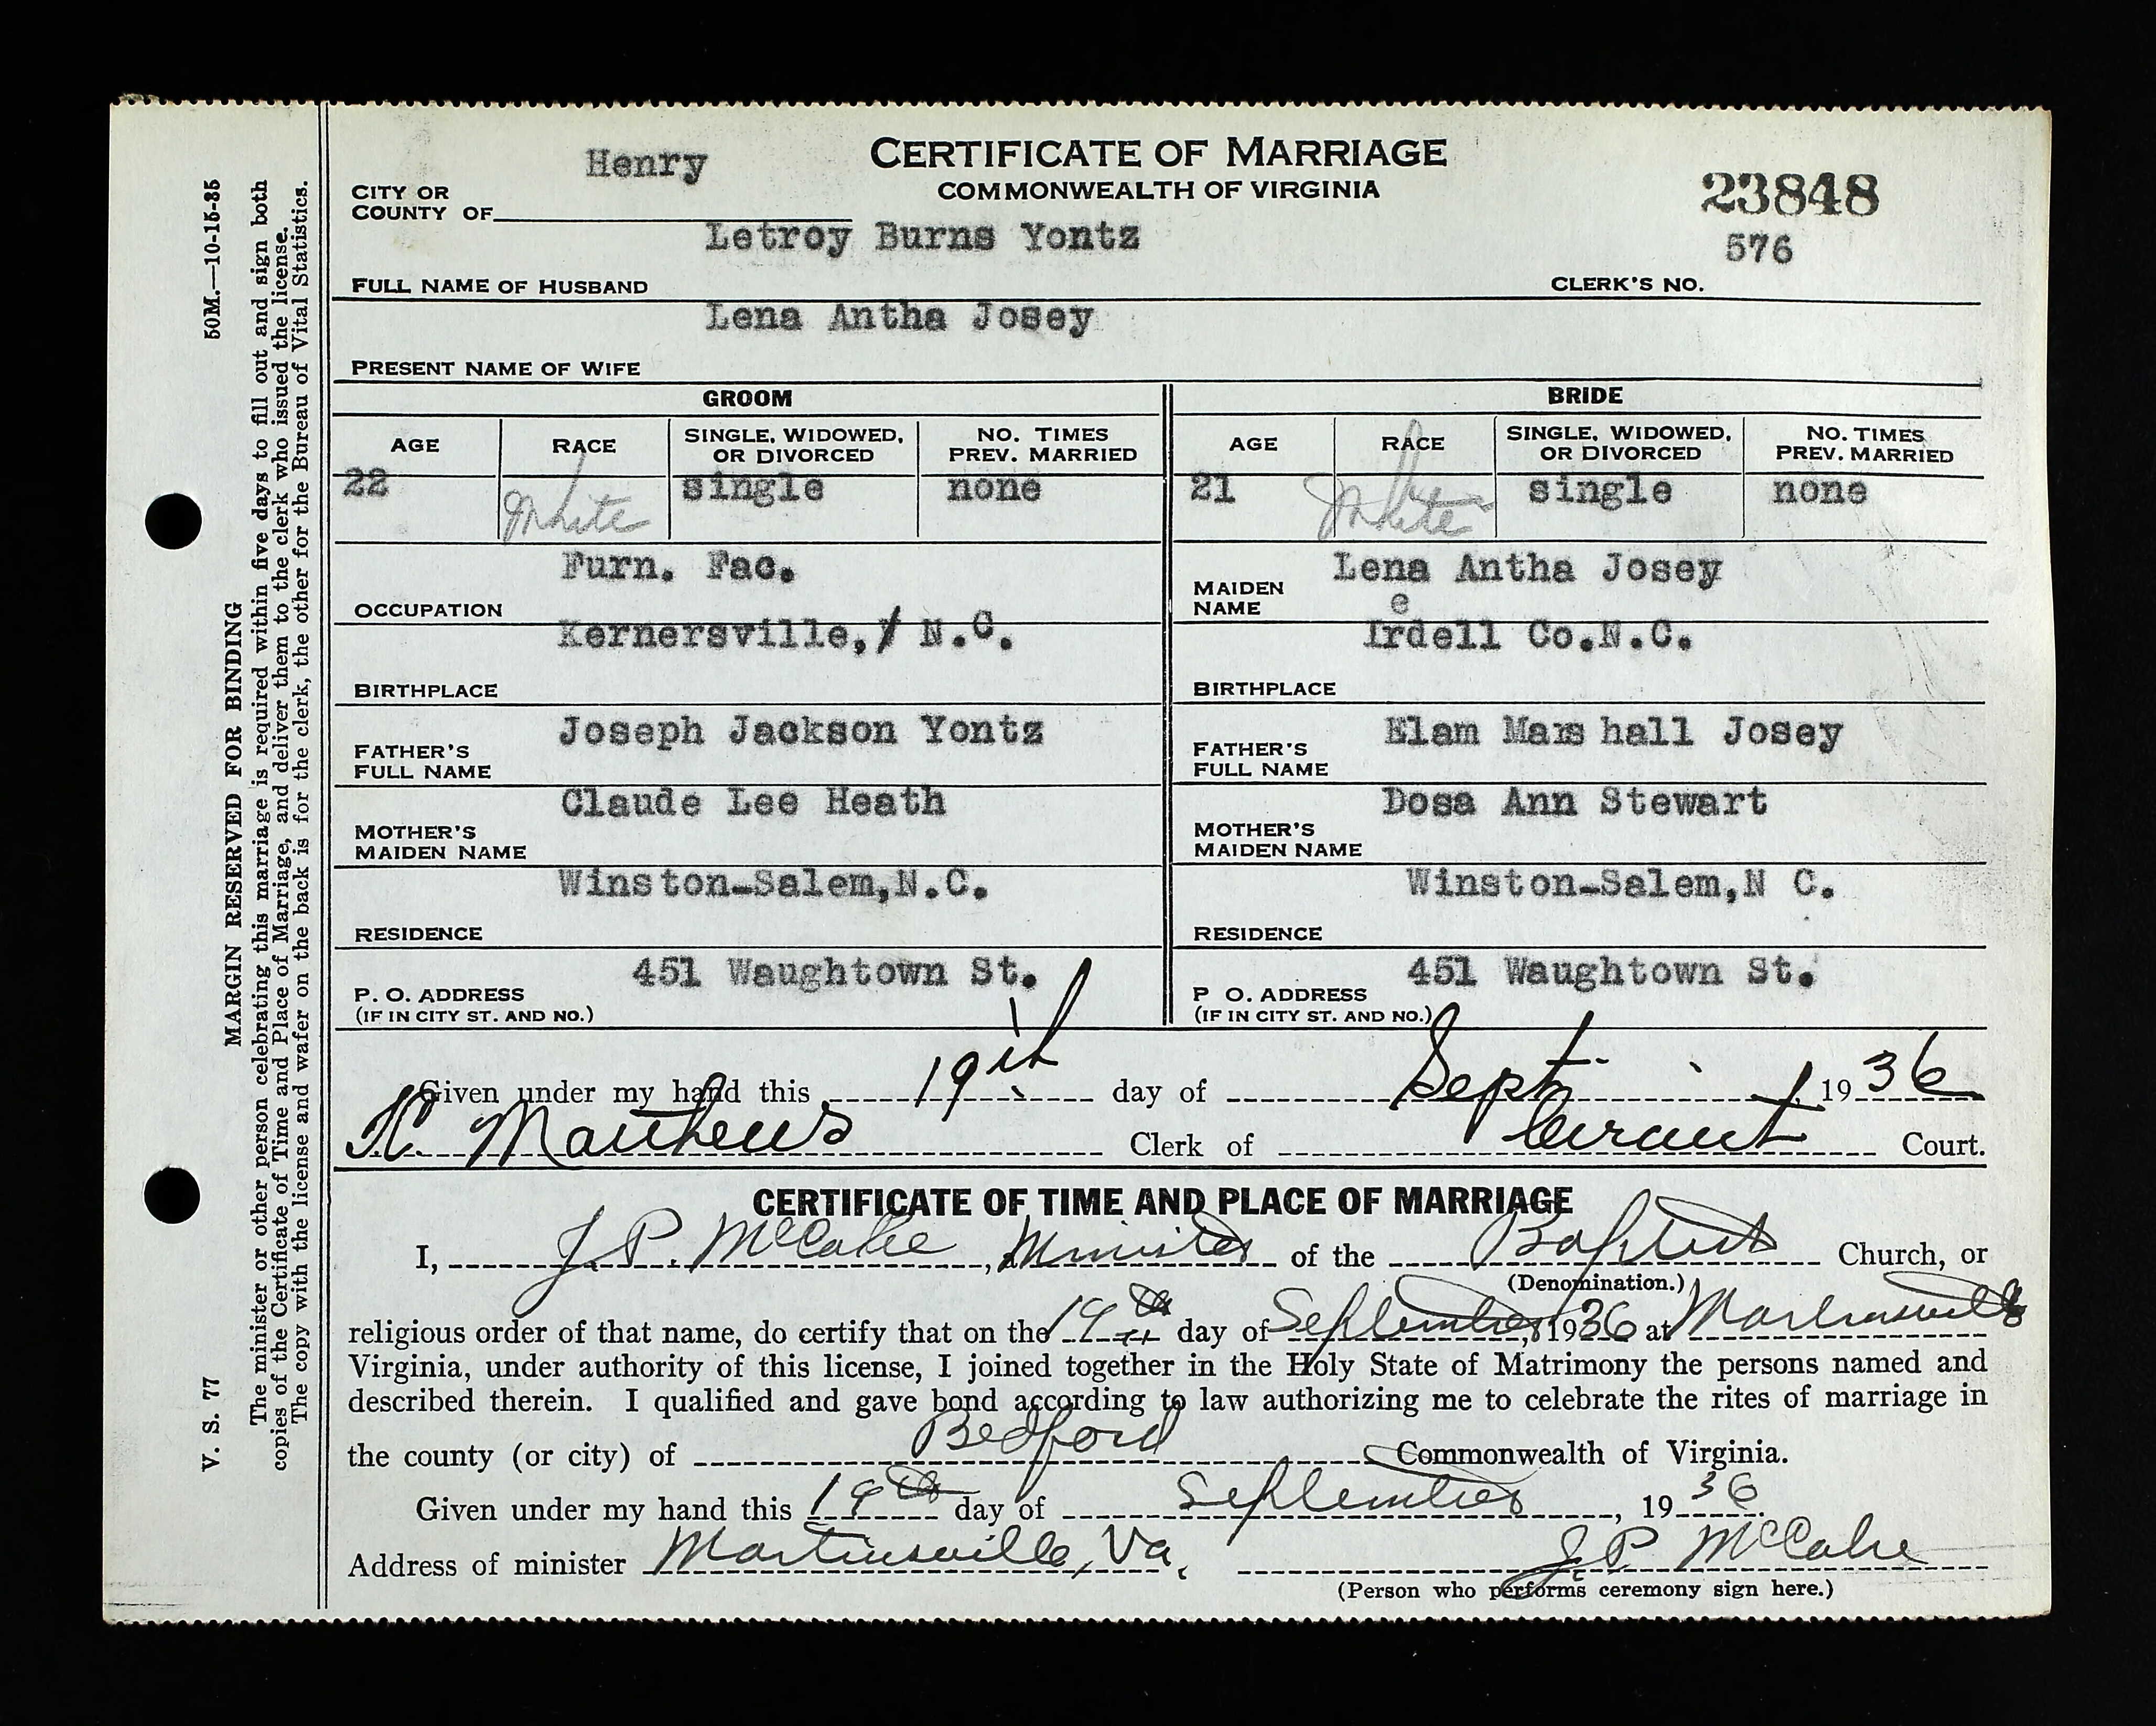 CERTIFICATE OF MARRIAGE
COMMONWEALTH OF VIRGINIA
Henry
CITY OR
COUNTY OF
23848
576
Letroy Burns Yontz
FULL NAME OF HUSBAND
CLERK'S NO.
Lena Antha Josey
PRESENT NAME OF WIFE
GROOM BRIDE
AGE RACE SINGLE, WIDOWED, OR DIVORCED NO. TIMES PREV. MARRIED AGE RACE SINGLE, WIDOWED, OR DIVORCED NO. TIMES PREV. MARRIED
22 White single none 21 White single none
Furn. Fac.
OCCUPATION
Lena Antha Josey
MAIDEN
NAME
Kernersville, N.C.
BIRTHPLACE
e
Irdell Co.N.C.
BIRTHPLACE
Joseph Jackson Yontz
FATHER'S
FULL NAME
Elam Marshall Josey
FATHER'S
FULL NAME
Claude Lee Heath
MOTHER'S
MAIDEN NAME
Dosa Ann Stewart
MOTHER'S
MAIDEN NAME
Winston-Salem,N.C.
RESIDENCE
Winston-Salem,N C.
RESIDENCE
451 Waughtown St.
P. O. ADDRESS
(IF IN CITY ST. AND NO.)
451 Waughtown St.
P O. ADDRESS
(IF IN CITY ST. AND NO.)
Given under my hand this 19th day of Sept. , 1936
Matthews Clerk of Circuit Court.
CERTIFICATE OF TIME AND PLACE OF MARRIAGE
I, J. P. McCabe, a Minister of the Baptist Church, or
(Denomination.)
religious order of that name, do certify that on the 19th day of September, 1936 at Martinsville
Virginia, under authority of this license, I joined together in the Holy State of Matrimony the persons named and
described therein. I qualified and gave bond according to law authorizing me to celebrate the rites of marriage in
the county (or city) of Bedford Commonwealth of Virginia.
Given under my hand this 19th day of September, 1936.
Address of minister Martinsville, Va. J. P. McCabe
(Person who performs ceremony sign here.)
V. S. 77 50M.—10-15-35
MARGIN RESERVED FOR BINDING
The minister or other person celebrating this marriage is required within five days to fill out and sign both
copies of the Certificate of Time and Place of Marriage, and deliver them to the clerk who issued the license.
The copy with the license and wafer on the back is for the clerk, the other for the Bureau of Vital Statistics.